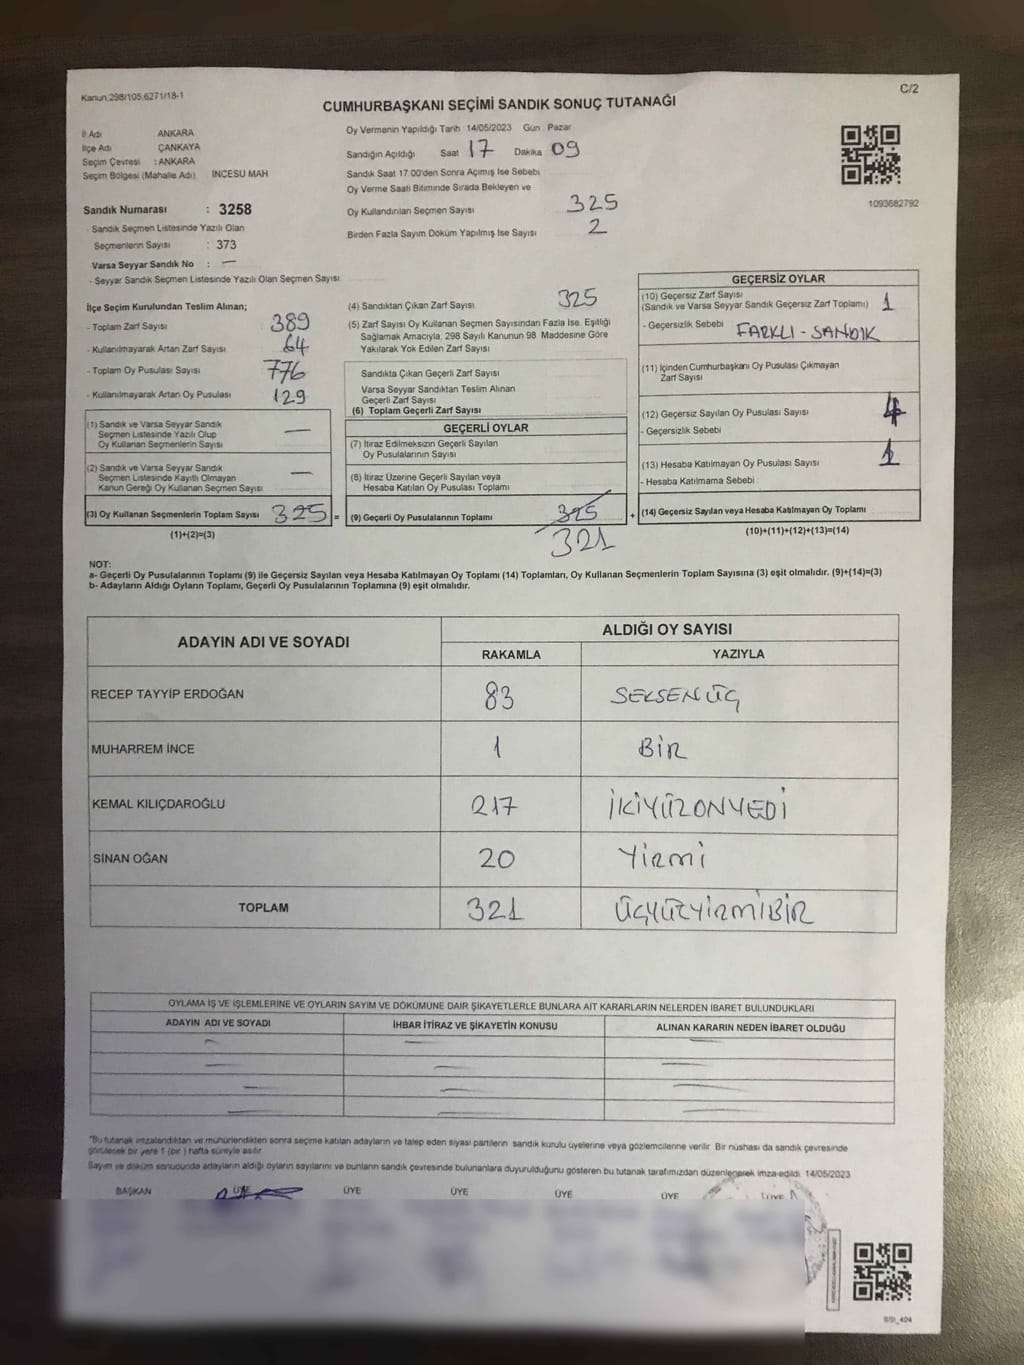 Kanun:298/105,6271/18-1
C/2
CUMHURBAŞKANI SEÇİMİ SANDIK SONUÇ TUTANAĞI
İl Adı ANKARA
İlçe Adı ÇANKAYA
Seçim Çevresi : ANKARA
Seçim Bölgesi (Mahalle Adı) INCESU MAH
Oy Vermenin Yapıldığı Tarih 14/05/2023 Gün Pazar
Sandığın Açıldığı Saat 17 Dakika 09
Sandık Saat 17.00'den Sonra Açımış Ise Sebebi
Oy Verme Saati Bitiminde Sırada Bekleyen ve
Oy Kullandırılan Seçmen Sayısı 325
Birden Fazla Sayım Döküm Yapılmış Ise Sayısı 2
1093682792
Sandık Numarası : 3258
- Sandık Seçmen Listesinde Yazılı Olan
Seçmenlerin Sayısı : 373
Varsa Seyyar Sandık No : —
- Seyyar Sandık Seçmen Listesinde Yazılı Olan Seçmen Sayısı
İlçe Seçim Kurulundan Teslim Alınan;
- Toplam Zarf Sayısı 389
- Kullanılmayarak Artan Zarf Sayısı 64
- Toplam Oy Pusulası Sayısı 776
- Kullanılmayarak Artan Oy Pusulası 129
(1) Sandık ve Varsa Seyyar Sandık
Seçmen Listesinde Yazılı Olup
Oy Kullanan Seçmenlerin Sayısı —
(2) Sandık ve Varsa Seyyar Sandık
Seçmen Listesinde Kayıtlı Olmayan
Kanun Gereği Oy Kullanan Seçmen Sayısı —
(3) Oy Kullanan Seçmenlerin Toplam Sayısı 325 =
(1)+(2)=(3)
(4) Sandıktan Çıkan Zarf Sayısı 325
(5) Zarf Sayısı Oy Kullanan Seçmen Sayısından Fazla Ise, Eşitliği
Sağlamak Amacıyla, 298 Sayılı Kanunun 98. Maddesine Göre
Yakılarak Yok Edilen Zarf Sayısı
Sandıkta Çıkan Geçerli Zarf Sayısı
Varsa Seyyar Sandıktan Teslim Alınan
Geçerli Zarf Sayısı
(6) Toplam Geçerli Zarf Sayısı
GEÇERLİ OYLAR
(7) İtiraz Edilmeksizin Geçerli Sayılan
Oy Pusulalarının Sayısı
(8) İtiraz Üzerine Geçerli Sayılan veya
Hesaba Katılan Oy Pusulası Toplamı
(9) Geçerli Oy Pusulalarının Toplamı 325 +
321
GEÇERSİZ OYLAR
(10) Geçersiz Zarf Sayısı
(Sandık ve Varsa Seyyar Sandık Geçersiz Zarf Toplamı) 1
- Geçersizlik Sebebi FARKLI-SANDIK
(11) İçinden Cumhurbaşkanı Oy Pusulası Çıkmayan
Zarf Sayısı
(12) Geçersiz Sayılan Oy Pusulası Sayısı
- Geçersizlik Sebebi
(13) Hesaba Katılmayan Oy Pusulası Sayısı
- Hesaba Katılmama Sebebi
(14) Geçersiz Sayılan veya Hesaba Katılmayan Oy Toplamı
(10)+(11)+(12)+(13)=(14)
NOT:
a- Geçerli Oy Pusulalarının Toplamı (9) ile Geçersiz Sayılan veya Hesaba Katılmayan Oy Toplamı (14) Toplamları, Oy Kullanan Seçmenlerin Toplam Sayısına (3) eşit olmalıdır. (9)+(14)=(3)
b- Adayların Aldığı Oyların Toplamı, Geçerli Oy Pusulalarının Toplamına (9) eşit olmalıdır.
ADAYIN ADI VE SOYADI ALDIĞI OY SAYISI
RAKAMLA YAZIYLA
RECEP TAYYİP ERDOĞAN 83 SEKSENÜÇ
MUHARREM İNCE 1 BİR
KEMAL KILIÇDAROĞLU 217 İKİYÜZONYEDİ
SİNAN OĞAN 20 YİRMİ
TOPLAM 321 ÜÇYÜZYİRMİBİR
OYLAMA İŞ VE İŞLEMLERİNE VE OYLARIN SAYIM VE DÖKÜMÜNE DAİR ŞİKAYETLERLE BUNLARA AİT KARARLARIN NELERDEN İBARET BULUNDUKLARI
ADAYIN ADI VE SOYADI İHBAR İTİRAZ VE ŞİKAYETİN KONUSU ALINAN KARARIN NEDEN İBARET OLDUĞU
"Bu tutanak imzalandıktan ve mühürlendikten sonra seçime katılan adayların ve talep eden siyasi partilerin sandık kurulu üyelerine veya gözlemcilerine verilir. Bir nüshası da sandık çevresinde
görülecek bir yere 1 (bir) hafta süreyle asılır.
Sayım ve döküm sonucunda adayların aldığı oyların sayılarını ve bunların sandık çevresinde bulunanlara duyurulduğunu gösteren bu tutanak tarafımızdan düzenlenerek imza edildi. 14/05/2023
BAŞKAN ÜYE ÜYE ÜYE ÜYE ÜYE ÜYE